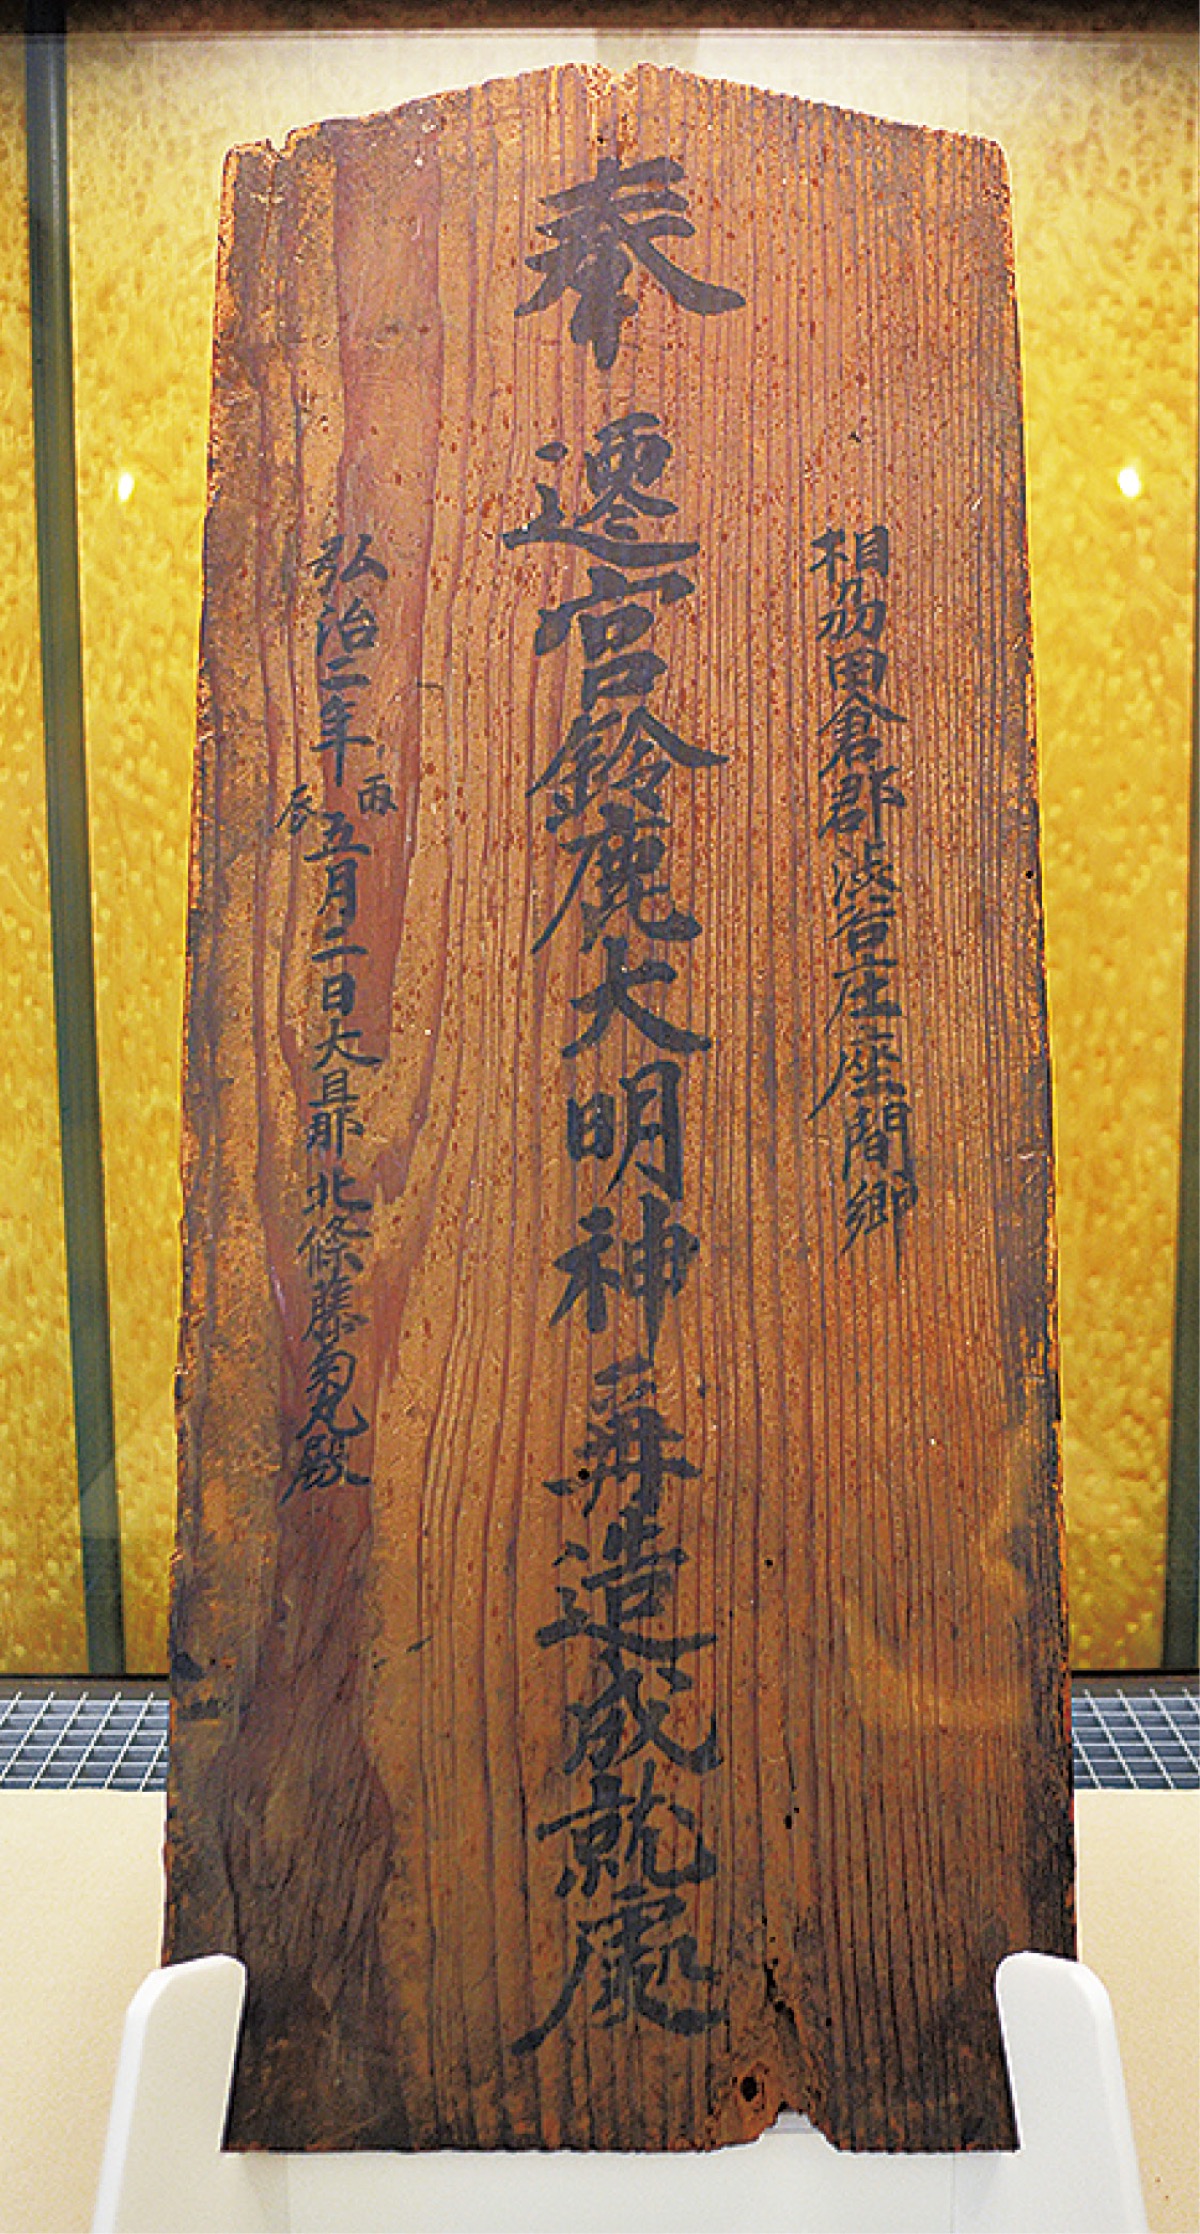 相刕田倉郡渋谷庄座間郷
奉 遷宮鈴鹿大明神再造成就處
弘治二年丙辰五月二日大旦那北條藤菊丸殿